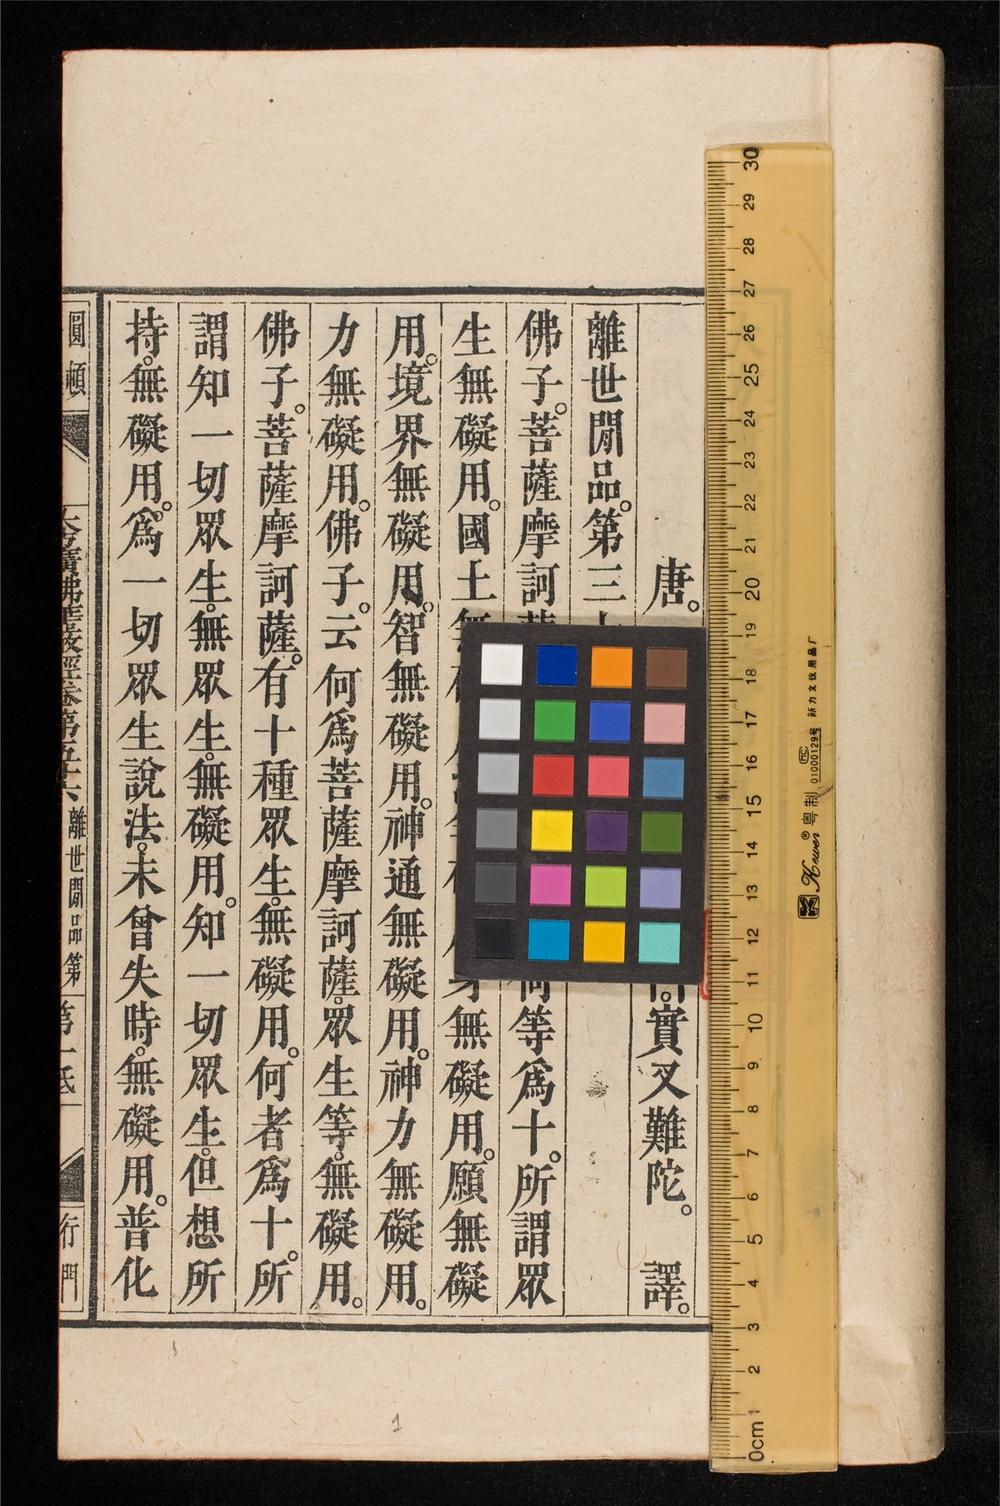 唐。
實叉難陀。譯。
離世間品。第三十
佛子。菩薩摩訶薩
何等為十。所謂眾
生無礙用。國土無
身無礙用。願無礙
用。境界無礙用。智無礙用。神通無礙用。神力無礙用。
力無礙用。佛子。云何為菩薩摩訶薩。眾生等。無礙用。
佛子。菩薩摩訶薩。有十種眾生。無礙用。何者為十。所
謂知一切眾生。無眾生。無礙用。知一切眾生。但想所
持。無礙用。為一切眾生說法。未曾失時。無礙用。普化
圓頓
大方廣佛華嚴經卷第五十六 離世間品第
第一紙
行門
30
29
28
27
26
25
24
23
22
21
20
19
18
17
16
15
14
13
12
11
10
9
8
7
6
5
4
3
2
1
0cm
Kewen®
粤制 01000129号